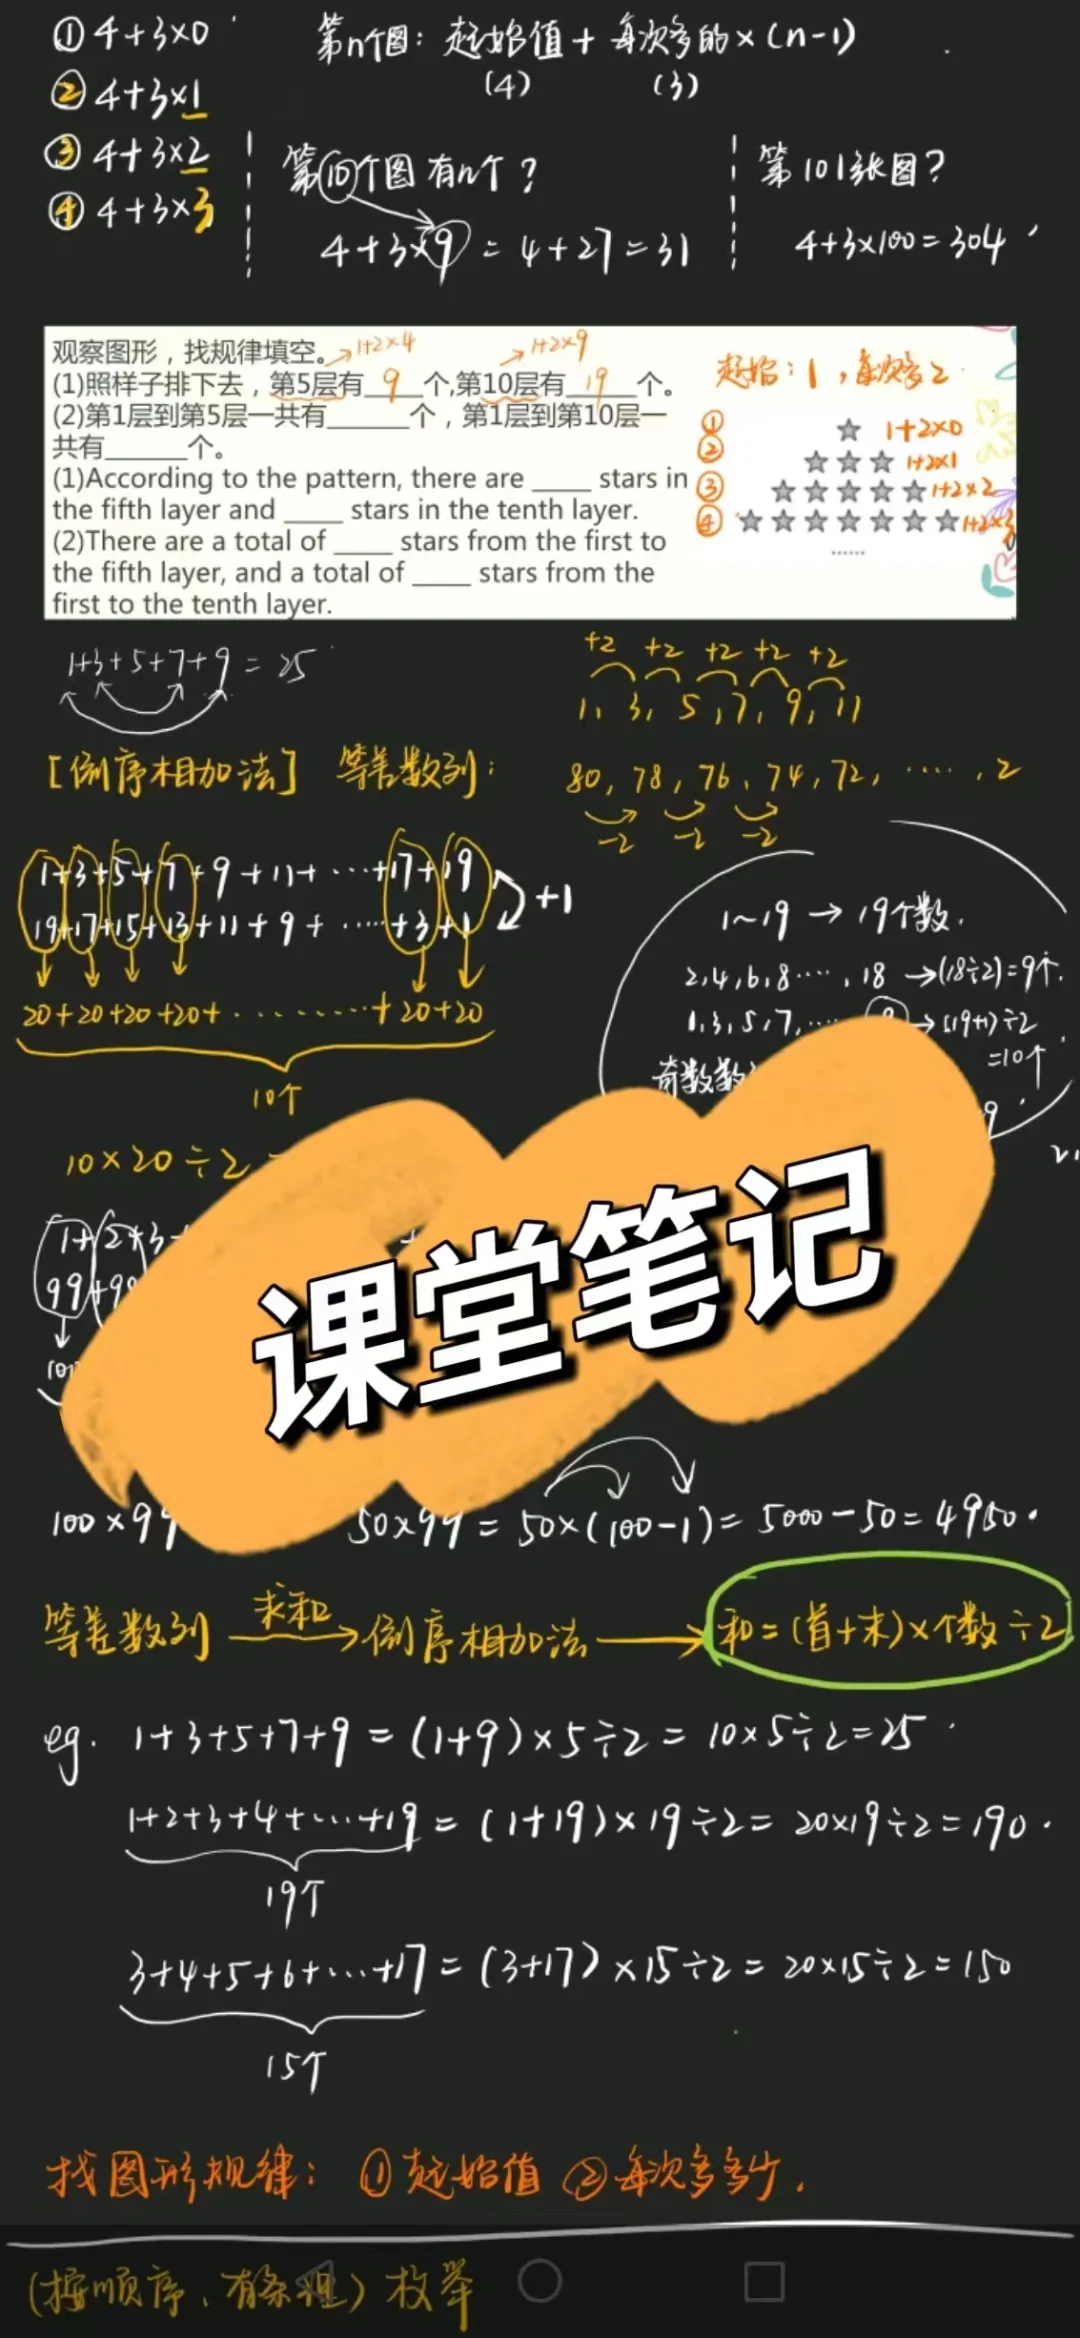 ①4+3×0
第n个图：起始值+每次多的×(n-1)
(4) (3)
②4+3×1
③4+3×2
④4+3×3
第⑩个图有n个？
4+3×9=4+27=31
第101张图？
4+3×100=304
观察图形，找规律填空。
1+2×4 1+2×9
(1)照样子排下去，第5层有 9 个,第10层有 19 个。
(2)第1层到第5层一共有______个，第1层到第10层一
共有______个。
(1)According to the pattern, there are ____ stars in
the fifth layer and ____ stars in the tenth layer.
(2)There are a total of ____ stars from the first to
the fifth layer, and a total of ____ stars from the
first to the tenth layer.
起始：1，每次多2
① 1+2×0
② 1+2×1
③ 1+2×2
④ 1+2×3
......
1+3+5+7+9=25
+2 +2 +2 +2 +2
1, 3, 5, 7, 9, 11
[倒序相加法] 等差数列：
80, 78, 76, 74, 72, ……, 2
-2 -2 -2
1+3+5+7+9+11+…+17+19
19+17+15+13+11+9+…+3+1
+1
20+20+20+20+………+20+20
10个
1~19→19个数.
2,4,6,8…,18→(18÷2)=9个.
1,3,5,7,… 9→(19+1)÷2
=10个
奇数数
9
10×20÷2
1+2+3
99+9
100×99
课堂笔记
50×99=50×(100-1)=5000-50=4950.
等差数列 求和→倒序相加法→和=(首+末)×个数÷2
eg. 1+3+5+7+9=(1+9)×5÷2=10×5÷2=25
1+2+3+4+…+19=(1+19)×19÷2=20×19÷2=190.
19个
3+4+5+6+…+17=(3+17)×15÷2=20×15÷2=150
15个
找图形规律：①起始值 ②每次多多少.
(按顺序、有条理)枚举